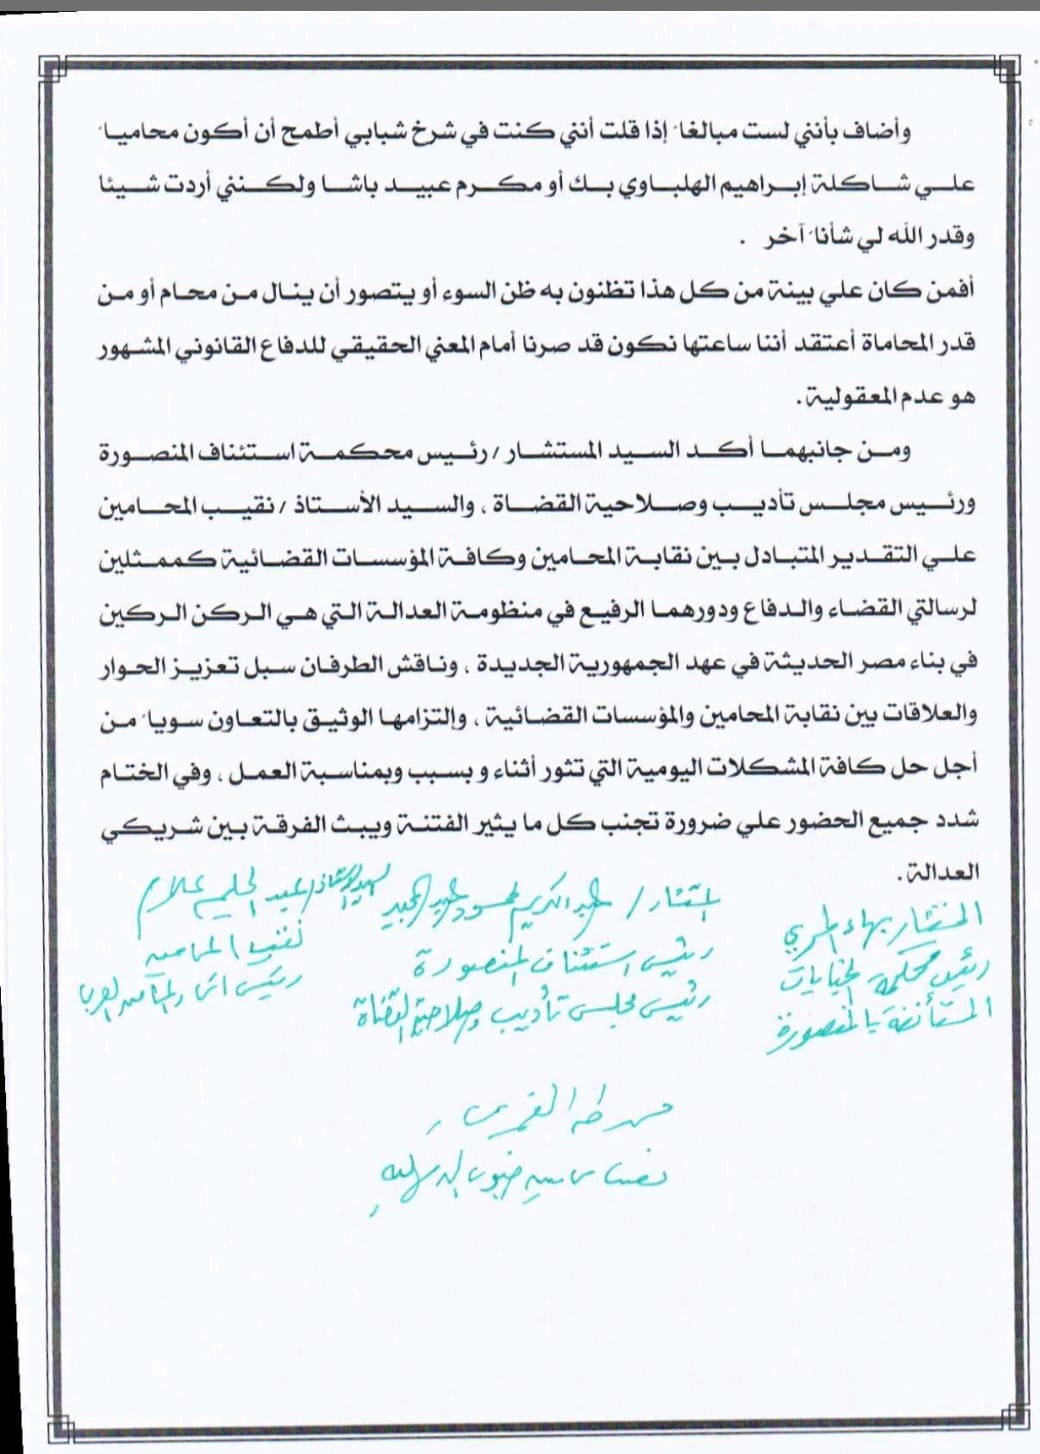 وأضاف بأنني لست مبالغاً إذا قلت أنني كنت في شرخ شبابي أطمح أن أكون محامياً
علي شاكلة إبراهيم الهلباوي بك أو مكرم عبيد باشا ولكنني أردت شيئا
وقدر الله لي شأناً آخر .
أفمن كان علي بينة من كل هذا تظنون به ظن السوء أو يتصور أن ينال من محام أو من
قدر المحاماة أعتقد أننا ساعتها نكون قد صرنا أمام المعني الحقيقي للدفاع القانوني المشهور
هو عدم المعقولية.
ومن جانبهما أكد السيد المستشار / رئيس محكمة استئناف المنصورة
ورئيس مجلس تأديب وصلاحية القضاة ، والسيد الأستاذ / نقيب المحامين
علي التقدير المتبادل بين نقابة المحامين وكافة المؤسسات القضائية كممثلين
لرسالتي القضاء والدفاع ودورهما الرفيع في منظومة العدالة التي هي الركن الركين
في بناء مصر الحديثة في عهد الجمهورية الجديدة ، وناقش الطرفان سبل تعزيز الحوار
والعلاقات بين نقابة المحامين والمؤسسات القضائية ، وإلتزامها الوثيق بالتعاون سوياً من
أجل حل كافة المشكلات اليومية التي تثور أثناء و بسبب وبمناسبة العمل ، وفي الختام
شدد جميع الحضور علي ضرورة تجنب كل ما يثير الفتنة ويبث الفرقة بين شريكي
العدالة.
المستشار بهاء المري
رئيس محكمة الجنايات
المستأنفة بالمنصورة
المستشار / عبد الكريم محمود عبد المجيد
رئيس استئناف المنصورة
رئيس مجلس تأديب وصلاحية القضاة
السيد الأستاذ / عبد الحليم علام
نقيب المحامين
رئيس اتحاد المحامين العرب